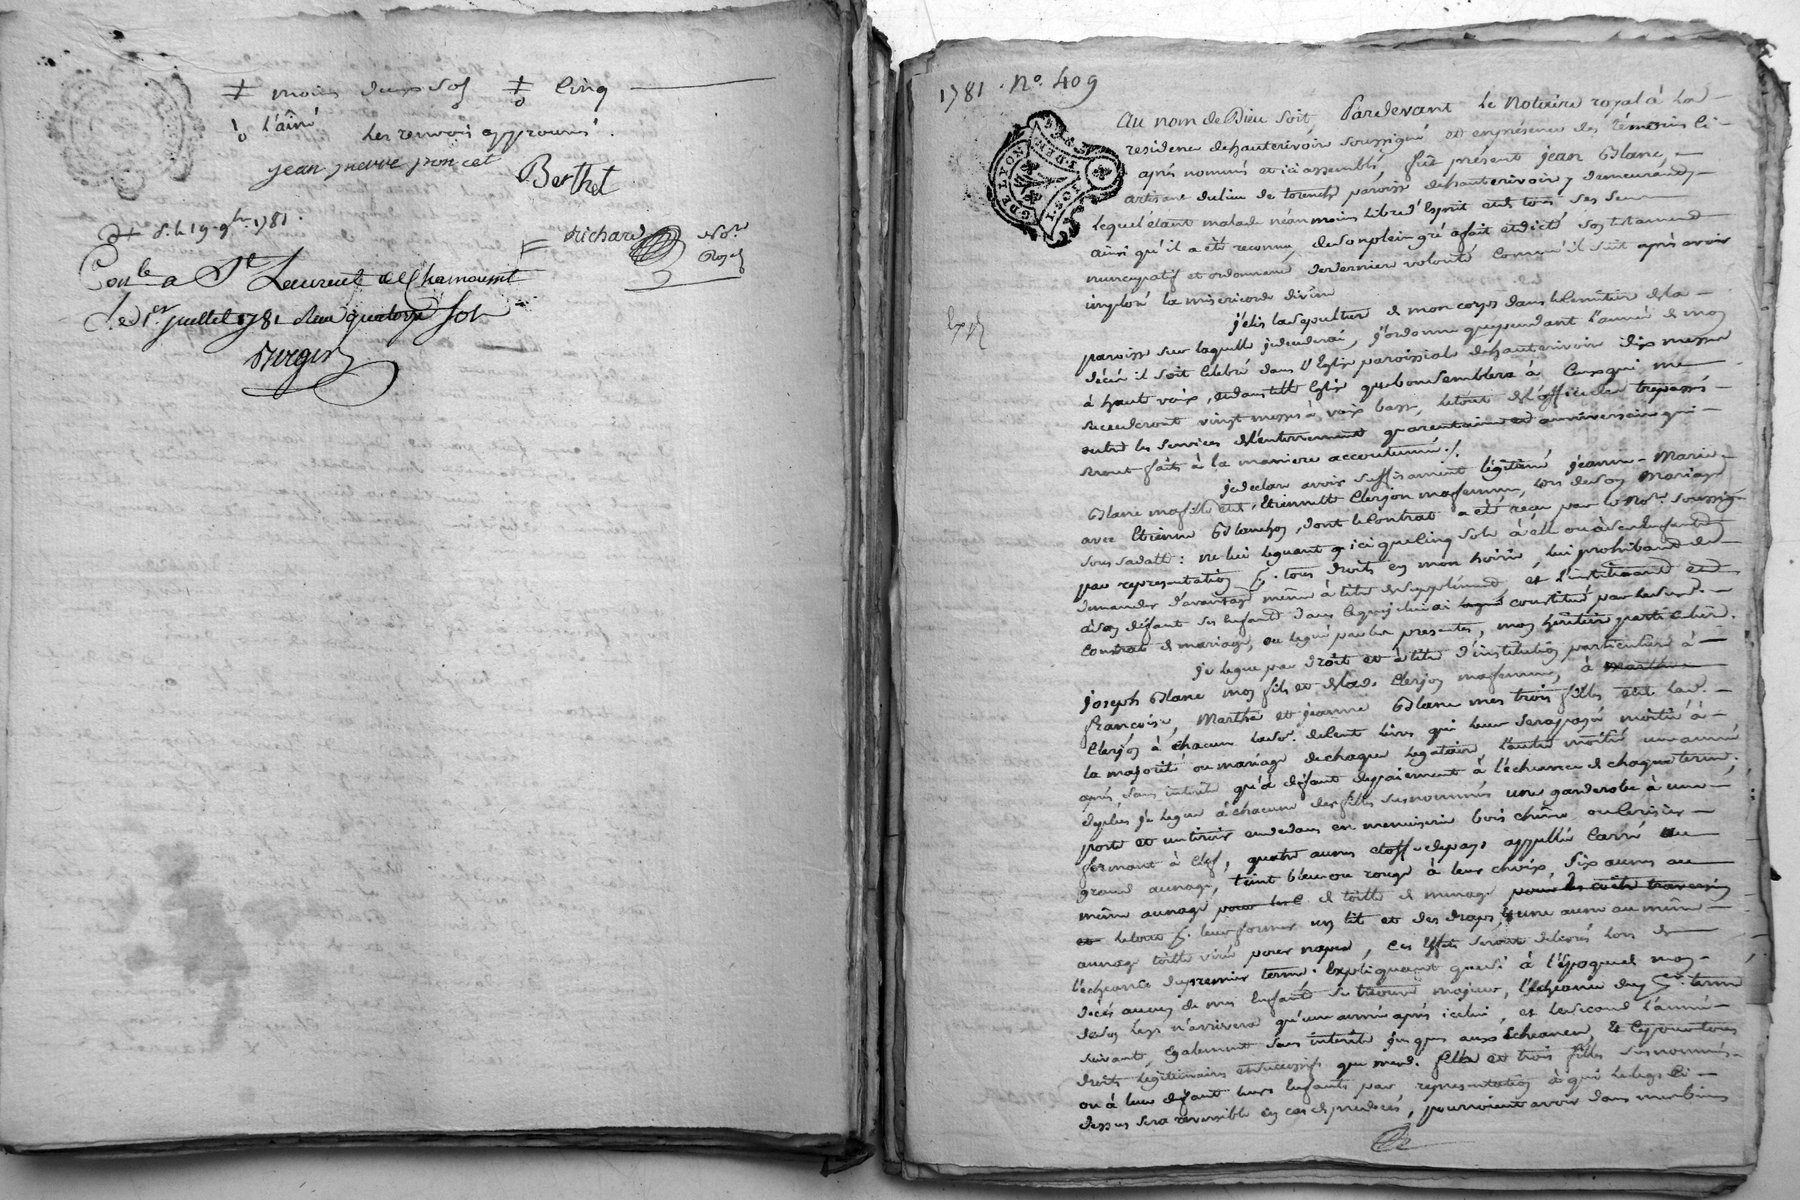 ≠ moins deux sols ≠ Cinq
l'aîné Les renvois approuvés
jean pierre poncet
Berthet
Richard Nore Royal
1781
Conlé a St Laurent de Chamousset
Le 1er juillet 1781 Reçu quatorze sols
Verger
1781. No. 409
GDE LYON
Exp
Au nom de Dieu soit, Pardevant le Notaire royal à la
residence dehauterivoire soussigné et enprésence des témoins ci-
après nommés et ici assemblés, fut présent jean Blanc,
artisane dulieu de paroisse dehauterivoire y demeurant,
lequel étant malade néanmoins libre d'Esprit et de tous ses sens
ainsi qu'il a été reconnu, de son plein gré afait et dicté son testament
nuncupatif et ordonnance dedernière volonté comme il suit après avoir
imploré la misericorde divine
j'élis la sépulture de mon corps dans le Cimetière de la
paroisse sur laquelle je décèderai, j'ordonne que pendant l'année de mon
décès il soit célébré dans l'Eglise paroissiale dehauterivoire dix messes
à haute voix, et dans telle Eglise que bon semblera à ceux qui me
succederont vingt messes à voix basse, le tout de l'office des trepassés
outre les services d'enterrement quarantaine et anniversaire qui
seront faits à la maniere accoutumée./.
je declare avoir suffisament légitimé jeanne-Marie
Blanc ma fille et d'Etiennette Clerjon ma femme, lors de son Mariage
avec Etienne Blanchon, dont le Contrat a été reçu par le Nore. soussigné
sous sa date: ne lui leguant ici que cinq sols à elle ou à ses enfants
par representation p. tous droits en mon hoirie, lui prohibant de
demander d'avantage même à titre de supplément et l'instituant et
à son défaut ses enfants dans ce que je lui ai constitué par led.
Contrat de mariage, ou legué par les presentes, mon héritière particulière.
je legue par droit et à titre d'institution particulière à
joseph Blanc mon fils et de lad. Clerjon ma femme, à Marthe
françoise, Marthe et jeanne Blanc mes trois filles et de lad.
Clerjon à chacun la so. de Cent livres qui leur sera payée moitié à
la majorité ou mariage de chaque legataire, l'autre moitié une année
après, sans intérêts qu'à défaut de paiement à l'écheance de chaque terme,
de plus je legue à chacune des filles susnommées une garderobe à une
porte et un tiroir au dedans en menuiserie bois chêne ou Cerisier
fermant à clef, quatre aunes étoffe de pays appellée Carré au
grand aunage, teint bleu ou rouge à leur choix, six aunes au
même aunage pour de toille de menage pour
et le tout p. leur former un lit et des draps, une aune au même
aunage toille pour nappes, ces effets seront delivrés lors de
l'écheance du premier terme. Expliquant que si à l'époque de mon
décès aucun de mes Enfants se trouve majeur, l'échéance du pr. terme
de son legs n'arrivera qu'une année après icelui, et le second l'année
suivante, également sans intérêts jusques aux Echeances, Et ce pour tous
droits légitimaires et successifs que mesd. fils et trois filles susnommés
ou à leur défaut leurs Enfants par representation à qui le legs ci
dessus sera reversible en cas de predecés, pourroient avoir dans mes biens